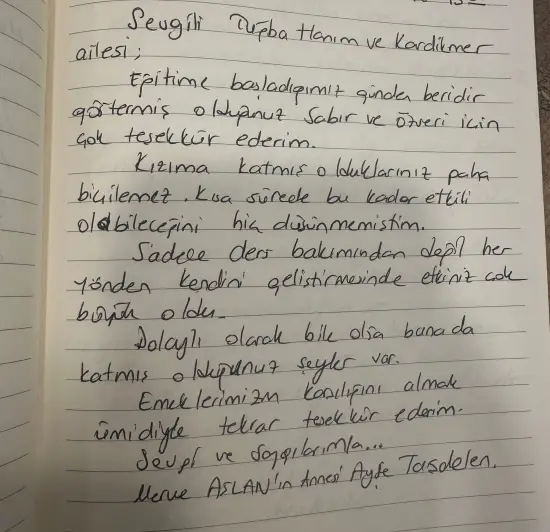 Sevgili Tuğba Hanım ve Kardikmer
ailesi;
Eğitime başladığımız günden beridir
göstermiş olduğunuz Sabır ve özveri için
çok teşekkür ederim.
Kızıma katmış olduklarınız paha
biçilemez. Kısa sürede bu kadar etkili
olabileceğini hiç düşünmemiştim.
Sadece ders bakımından değil her
yönden kendini geliştirmesinde etkiniz çok
büyük oldu.
Dolaylı olarak bile olsa bana da
katmış olduğunuz şeyler var.
Emeklerimizin karşılığını almak
ümidiyle tekrar teşekkür ederim.
Sevgi ve Saygılarımla...
Merve ASLAN'ın Annesi Ayşe Taşdelen.